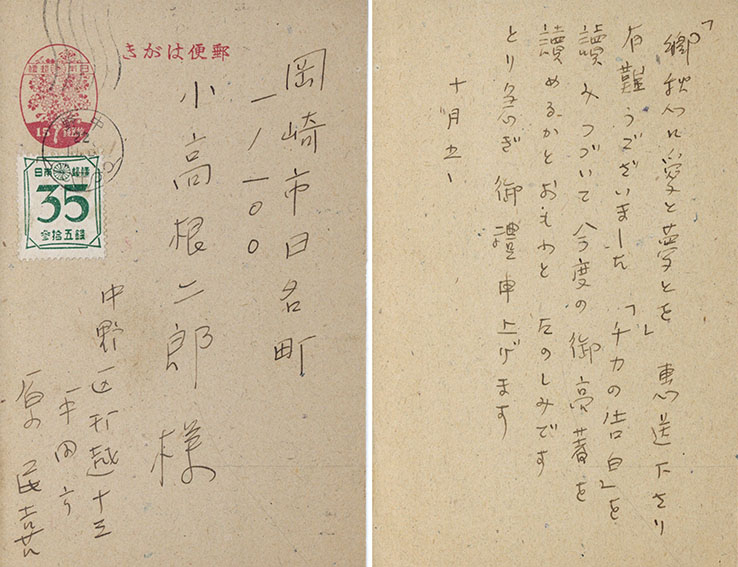 郵便はがき
岡崎市日名町
一ノ一〇〇
小高根二郎様
中野区打越十三
平田方
原民喜
35
参拾五銭
「郷愁 愛と夢とを」恵送下さり
有難うございました「チカの告白」を
讀みつづいて今度の御高著を
讀めるかとおもふと たのしみです
とり急ぎ御禮申上げます
十月五日